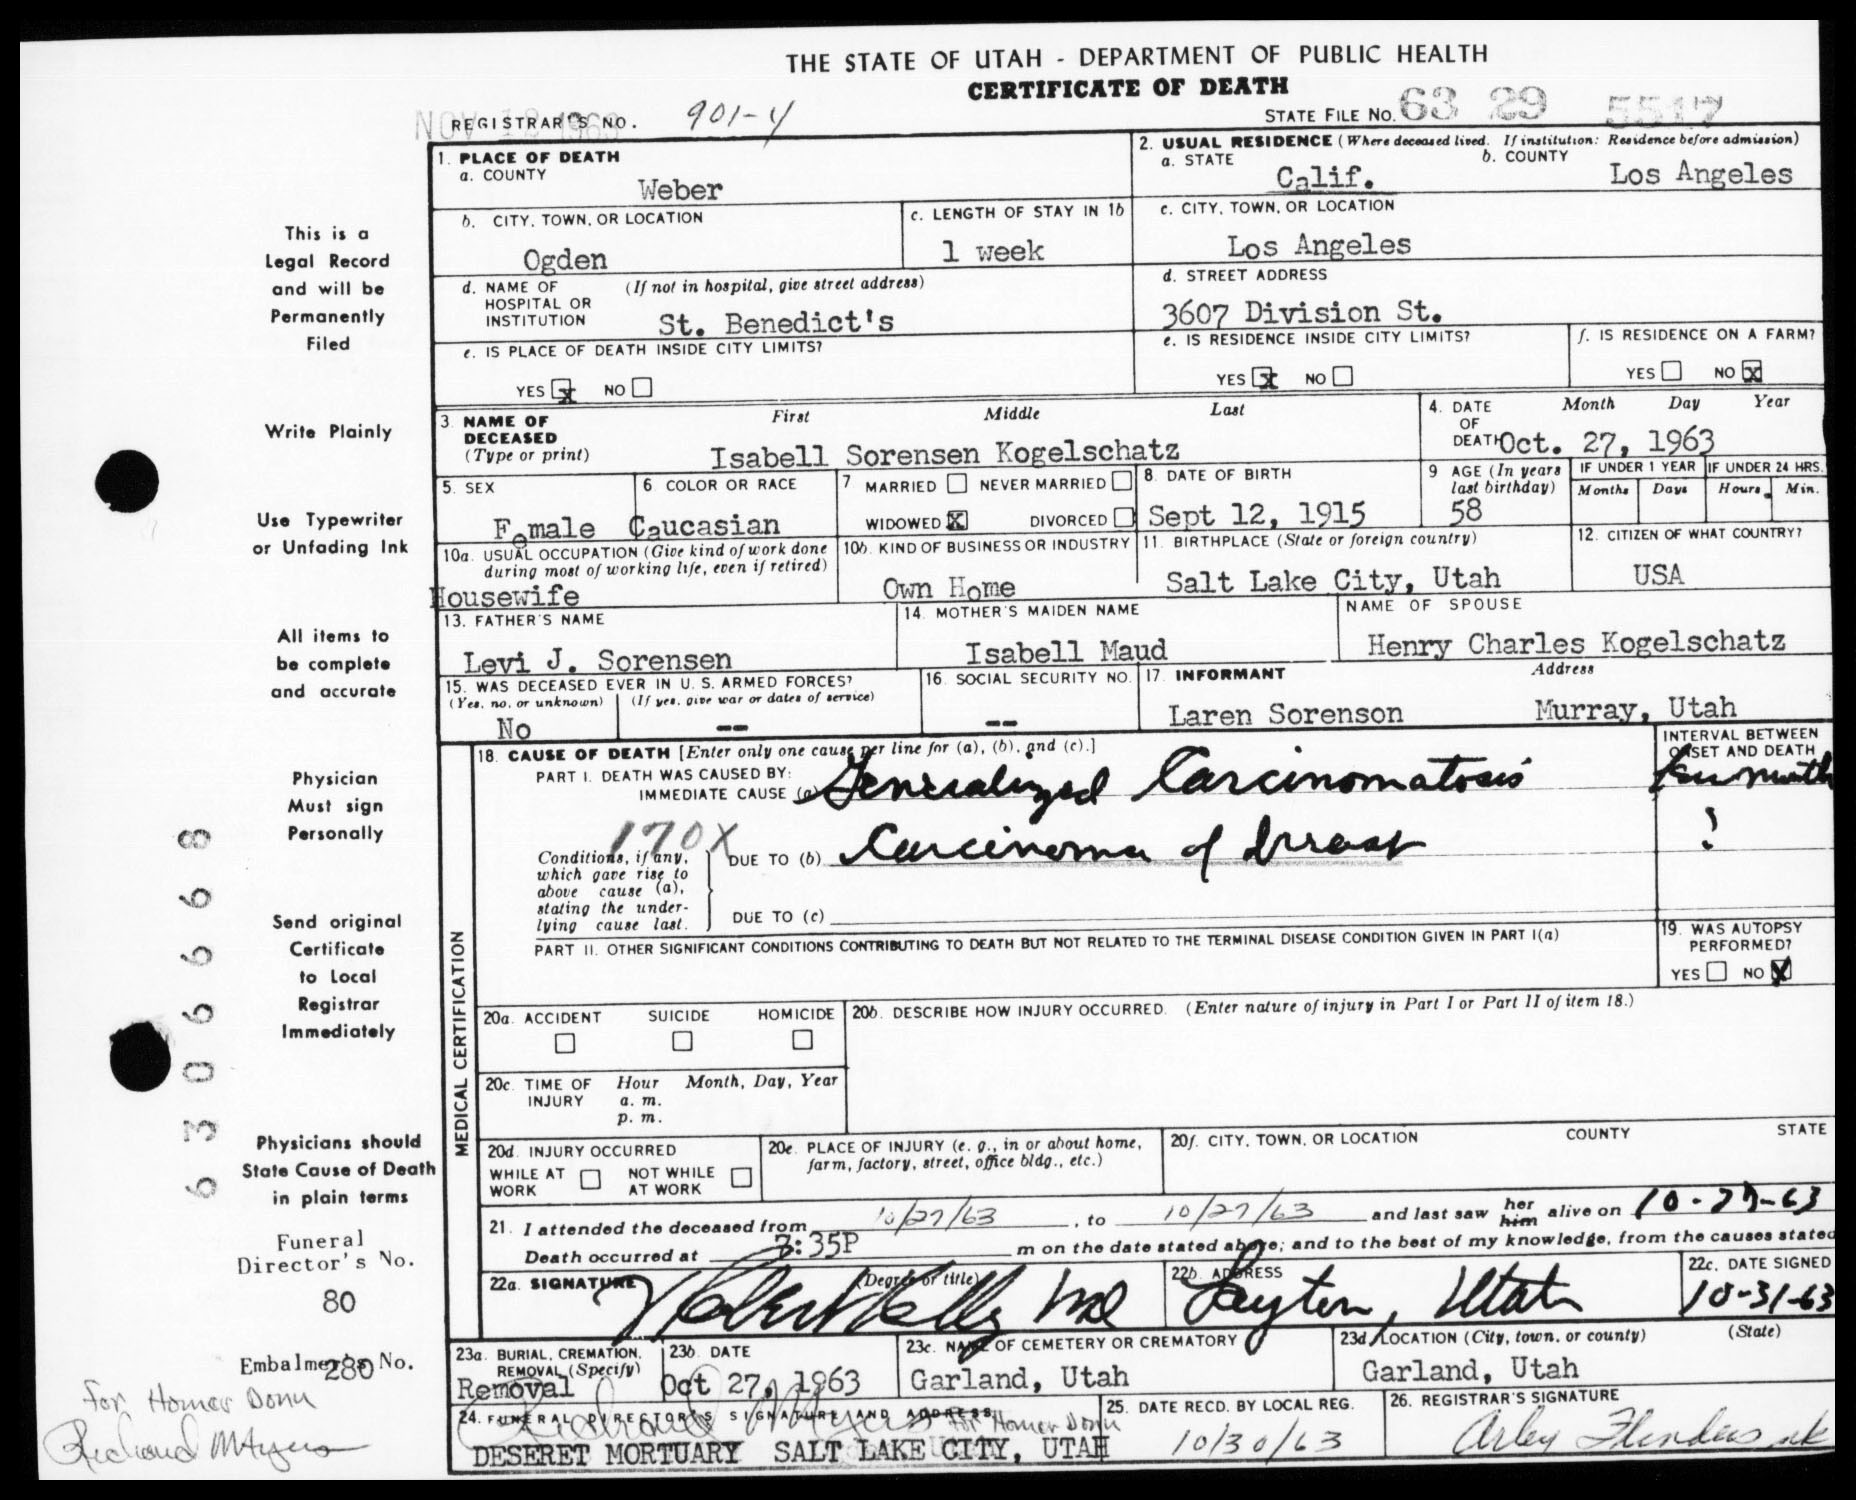 THE STATE OF UTAH - DEPARTMENT OF PUBLIC HEALTH
CERTIFICATE OF DEATH
NOV 12 1963
REGISTRAR'S NO. 901-4
STATE FILE NO. 63 29 5517
1. PLACE OF DEATH
a. COUNTY
Weber
2. USUAL RESIDENCE (Where deceased lived. If institution: Residence before admission)
a. STATE
Calif.
b. COUNTY
Los Angeles
b. CITY, TOWN, OR LOCATION
Ogden
c. LENGTH OF STAY IN 1b
1 week
c. CITY, TOWN, OR LOCATION
Los Angeles
d. NAME OF HOSPITAL OR INSTITUTION
(If not in hospital, give street address)
St. Benedict's
d. STREET ADDRESS
3607 Division St.
e. IS PLACE OF DEATH INSIDE CITY LIMITS?
YES x NO
e. IS RESIDENCE INSIDE CITY LIMITS?
YES x NO
f. IS RESIDENCE ON A FARM?
YES NO x
3. NAME OF DECEASED
(Type or print)
First Middle Last
Isabell Sorensen Kogelschatz
4. DATE OF DEATH
Month Day Year
Oct. 27, 1963
5. SEX
Female
6 COLOR OR RACE
Caucasian
7 MARRIED NEVER MARRIED
WIDOWED X DIVORCED
8. DATE OF BIRTH
Sept 12, 1915
9 AGE (In years last birthday)
58
IF UNDER 1 YEAR
Months Days
IF UNDER 24 HRS.
Hours Min.
10a. USUAL OCCUPATION (Give kind of work done during most of working life, even if retired)
Housewife
10b. KIND OF BUSINESS OR INDUSTRY
Own Home
11. BIRTHPLACE (State or foreign country)
Salt Lake City, Utah
12. CITIZEN OF WHAT COUNTRY?
USA
13. FATHER'S NAME
Levi J. Sorensen
14. MOTHER'S MAIDEN NAME
Isabell Maud
NAME OF SPOUSE
Henry Charles Kogelschatz
15. WAS DECEASED EVER IN U. S. ARMED FORCES?
(Yes, no, or unknown) (If yes, give war or dates of service)
No --
16. SOCIAL SECURITY NO.
--
17. INFORMANT Address
Laren Sorenson Murray, Utah
MEDICAL CERTIFICATION
18. CAUSE OF DEATH [Enter only one cause per line for (a), (b), and (c).]
INTERVAL BETWEEN ONSET AND DEATH
PART I. DEATH WAS CAUSED BY:
IMMEDIATE CAUSE (a) Generalized Carcinomatosis
170X
Conditions, if any, which gave rise to above cause (a), stating the underlying cause last.
DUE TO (b) Carcinoma of breast ?
DUE TO (c)
PART II. OTHER SIGNIFICANT CONDITIONS CONTRIBUTING TO DEATH BUT NOT RELATED TO THE TERMINAL DISEASE CONDITION GIVEN IN PART I(a)
19. WAS AUTOPSY PERFORMED?
YES NO X
20a. ACCIDENT SUICIDE HOMICIDE
20b. DESCRIBE HOW INJURY OCCURRED. (Enter nature of injury in Part I or Part II of item 18.)
20c. TIME OF INJURY
Hour Month, Day, Year
a. m.
p. m.
20d. INJURY OCCURRED
WHILE AT WORK NOT WHILE AT WORK
20e. PLACE OF INJURY (e. g., in or about home, farm, factory, street, office bldg., etc.)
20f. CITY, TOWN, OR LOCATION COUNTY STATE
21. I attended the deceased from 10/27/63, to 10/27/63 and last saw her him alive on 10-27-63
Death occurred at 3:35P m on the date stated above; and to the best of my knowledge, from the causes stated
22a. SIGNATURE (Degree or title)
Kelly MD
22b. ADDRESS
Layton, Utah
22c. DATE SIGNED
10-31-63
23a. BURIAL, CREMATION, REMOVAL (Specify)
Removal
23b. DATE
Oct 27, 1963
23c. NAME OF CEMETERY OR CREMATORY
Garland, Utah
23d. LOCATION (City, town, or county) (State)
Garland, Utah
24. FUNERAL DIRECTOR'S SIGNATURE AND ADDRESS
Richard Myers for Homer Donu
DESERET MORTUARY SALT LAKE CITY, UTAH
25. DATE RECD. BY LOCAL REG.
10/30/63
26. REGISTRAR'S SIGNATURE
This is a
Legal Record
and will be
Permanently
Filed
Write Plainly
Use Typewriter
or Unfading Ink
All items to
be complete
and accurate
Physician
Must sign
Personally
Send original
Certificate
to Local
Registrar
Immediately
Physicians should
State Cause of Death
in plain terms
Funeral
Director's No.
80
Embalmer's No.
280
For Homer Donu
Richard Myers
6306668